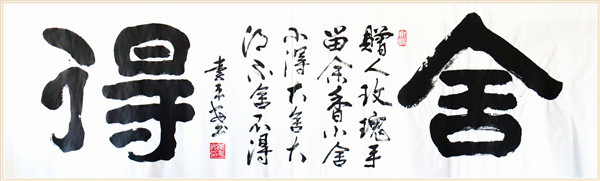 舍
赠人玫瑰手
留余香小舍
小得大舍大
得不舍不得
得